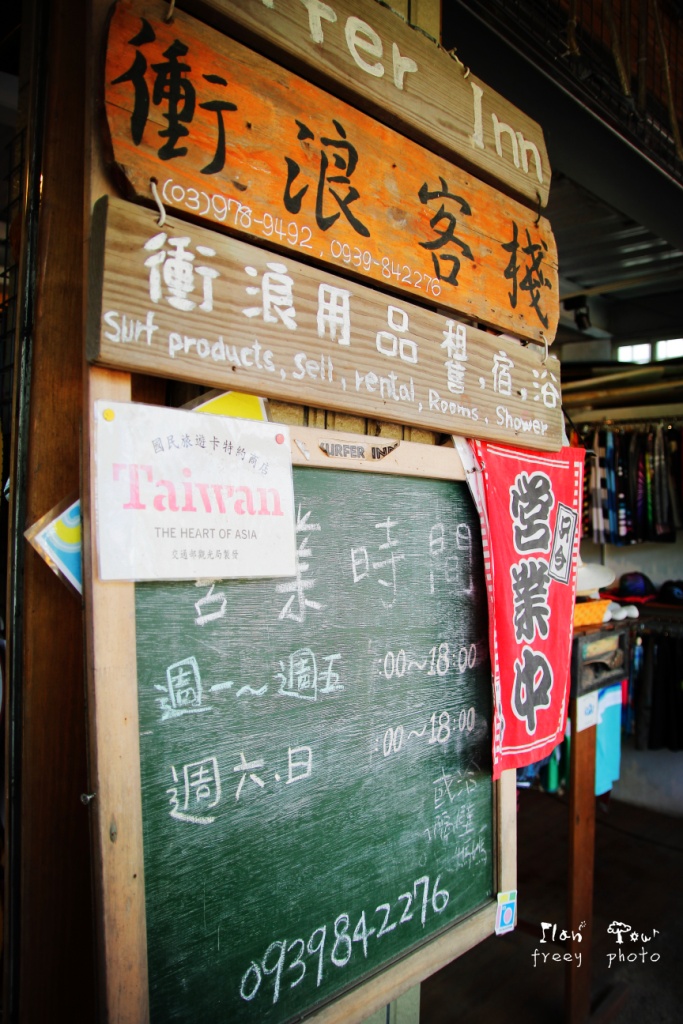 rfer Inn
衝浪客棧
(03)978-9492 , 0939-842276
衝浪用品租售,宿,浴
Surf products, sell, rental, Rooms, Shower
國民旅遊卡特約商店
Taiwan
THE HEART OF ASIA
交通部觀光局製發
SURFER INN
只今
営業中
營業時間
週一~週五 :00~18:00
週六.日 :00~18:00
0939842276
Ilan Tour
freey photo